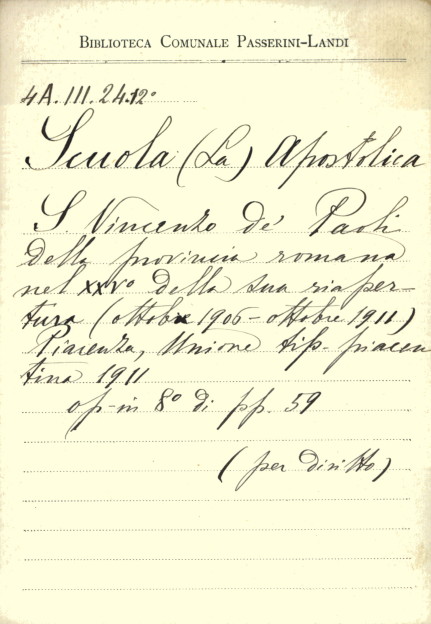 BIBLIOTECA COMUNALE PASSERINI-LANDI
4A.III.24.12°
Scuola (La) Apostolica
S. Vincenzo de' Paoli
della provincia romana
nel XXV° della sua riaper-
tura (ottob 1906 - ottobre 1911)
Piacenza, Unione tip. piacen
tina 1911
op-in 8° di pp. 59
(per diritto)